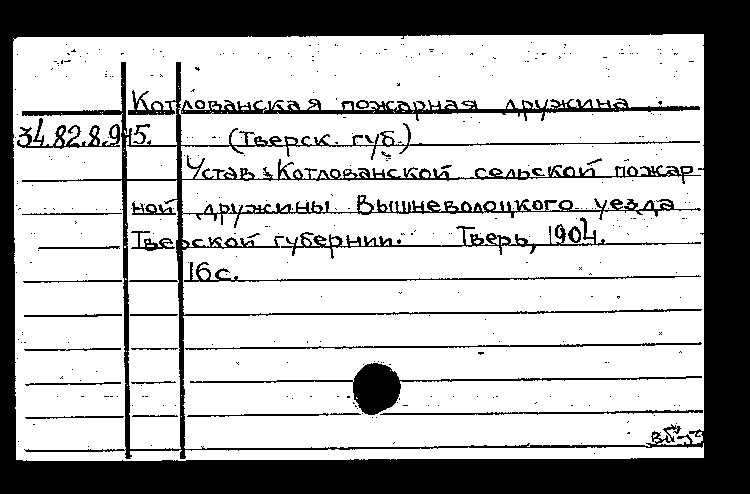 Котлованская пожарная дружина
34.82.8.945. (Тверск. губ.)
Устав Котлованской сельской пожар-
ной дружины Вышневолоцкого уезда
Тверской губернии. Тверь, 1904.
16 с.